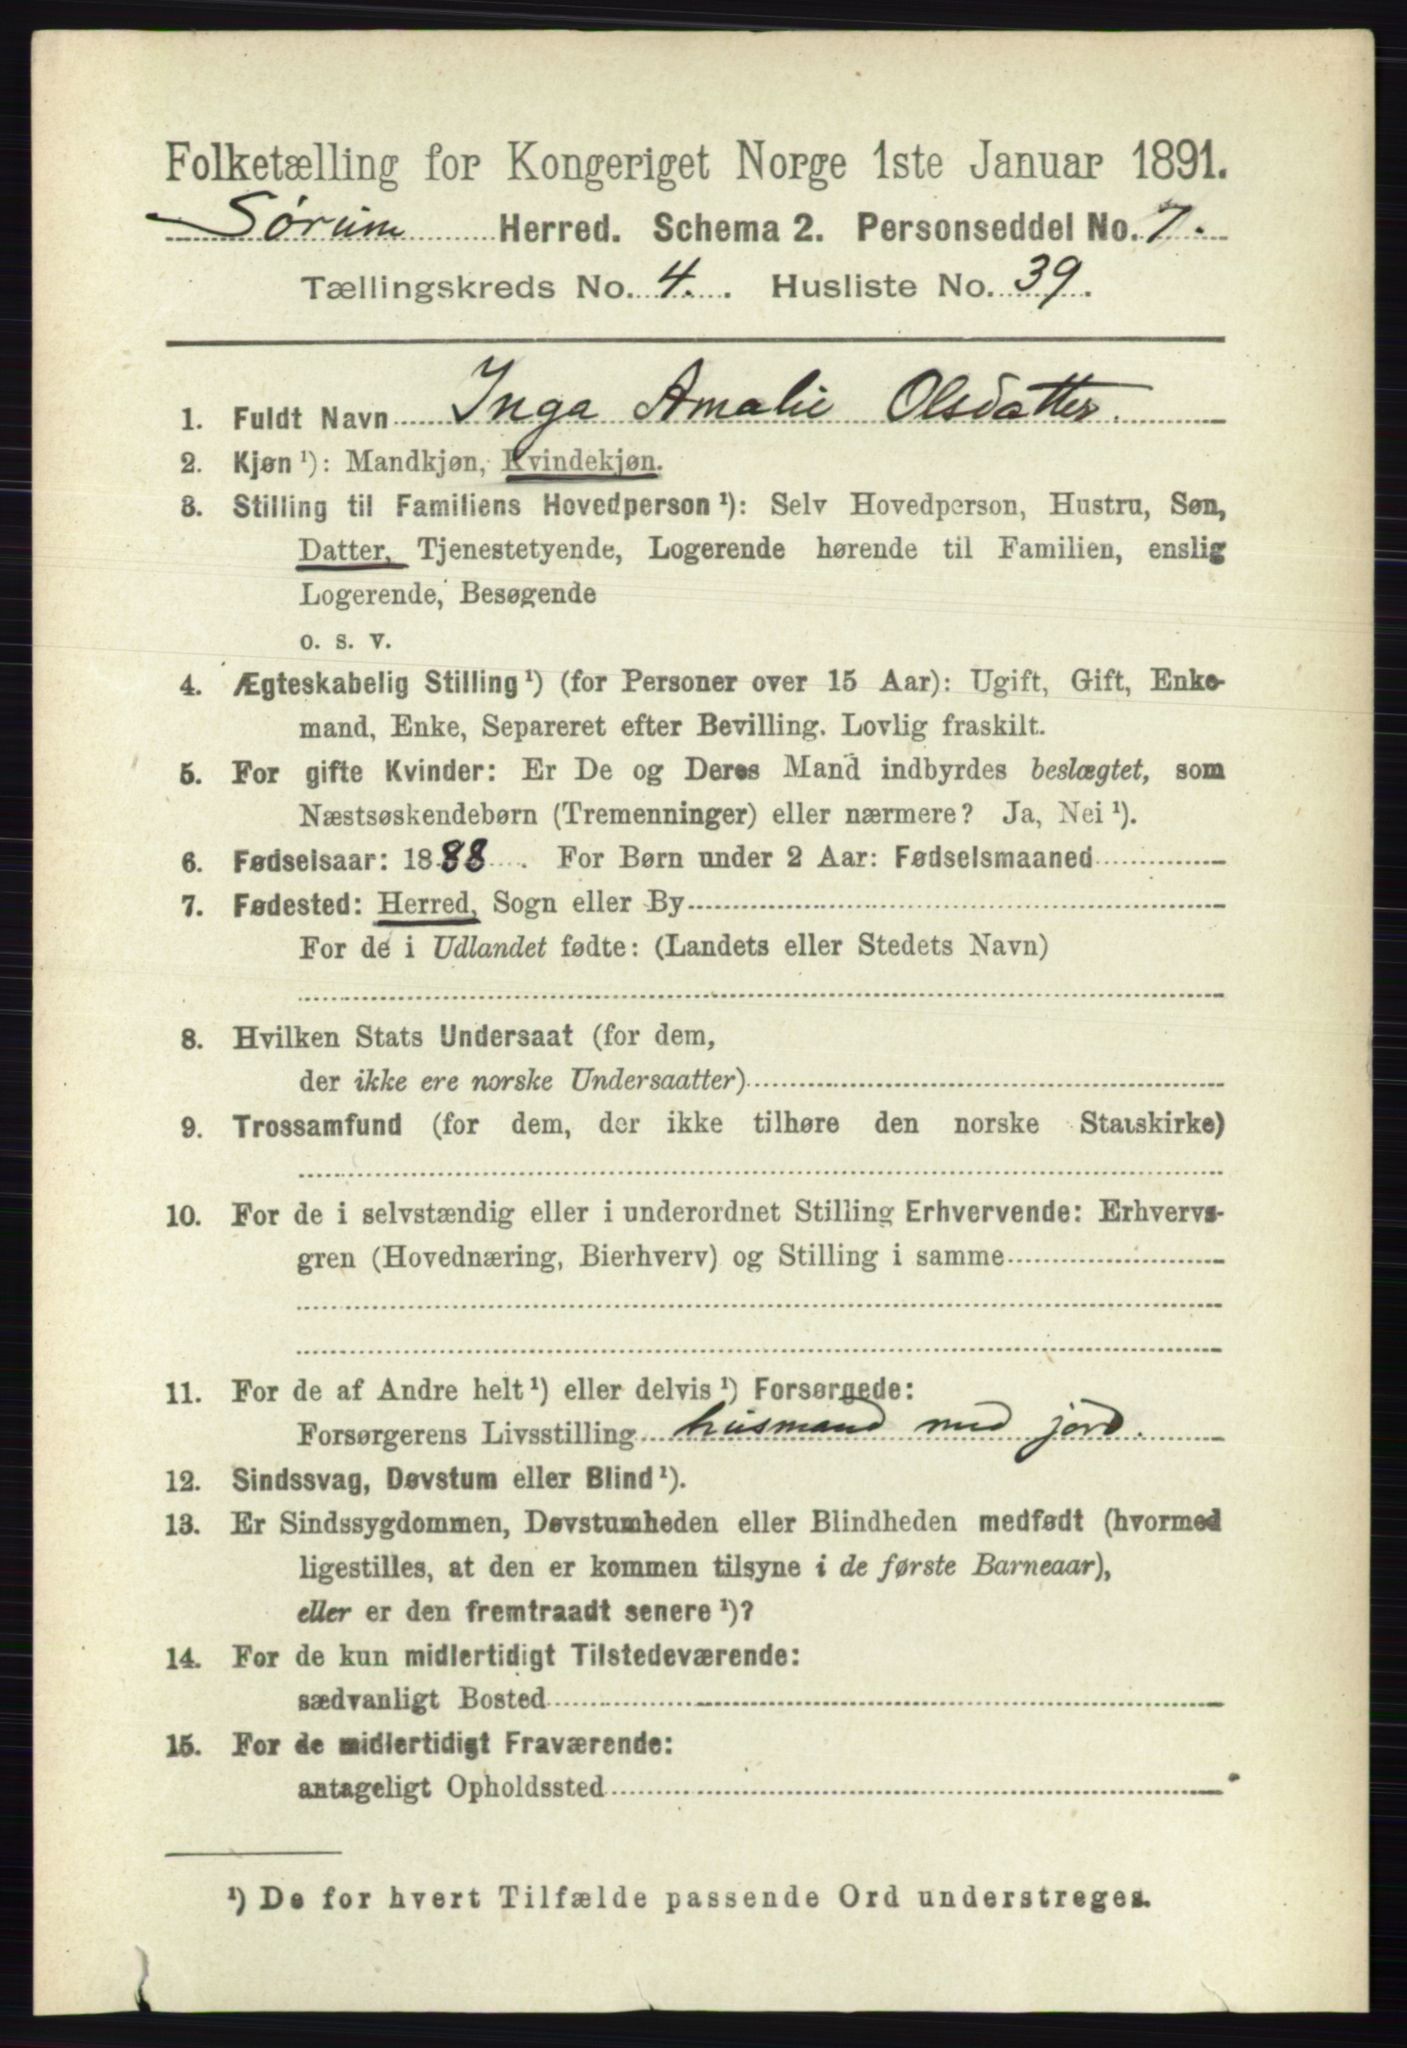 Folketælling for Kongeriget Norge 1ste Januar 1891.
Sørum Herred. Schema 2. Personseddel No. 7.
Tællingskreds No. 4. Husliste No. 39.
1. Fuldt Navn Inga Amalie Olsdatter.
2. Kjøn ¹): Mandkjøn, Kvindekjøn.
3. Stilling til Familiens Hovedperson ¹): Selv Hovedperson, Hustru, Søn,
Datter, Tjenestetyende, Logerende hørende til Familien, enslig
Logerende, Besøgende
o. s. v.
4. Ægteskabelig Stilling ¹) (for Personer over 15 Aar): Ugift, Gift, Enke-
mand, Enke, Separeret efter Bevilling. Lovlig fraskilt.
5. For gifte Kvinder: Er De og Deres Mand indbyrdes beslægtet, som
Næstsøskendebørn (Tremenninger) eller nærmere? Ja, Nei ¹).
6. Fødselsaar: 1888. For Børn under 2 Aar: Fødselsmaaned
7. Fødested: Herred, Sogn eller By
For de i Udlandet fødte: (Landets eller Stedets Navn)
8. Hvilken Stats Undersaat (for dem,
der ikke ere norske Undersaatter)
9. Trossamfund (for dem, der ikke tilhøre den norske Statskirke)
10. For de i selvstændig eller i underordnet Stilling Erhvervende: Erhvervs-
gren (Hovednæring, Bierhverv) og Stilling i samme
11. For de af Andre helt ¹) eller delvis ¹) Forsørgede:
Forsørgerens Livsstilling husmand med jord.
12. Sindssvag, Døvstum eller Blind ¹).
13. Er Sindssygdommen, Døvstumheden eller Blindheden medfødt (hvormed
ligestilles, at den er kommen tilsyne i de første Barneaar),
eller er den fremtraadt senere ¹)?
14. For de kun midlertidigt Tilstedeværende:
sædvanligt Bosted
15. For de midlertidigt Fraværende:
antageligt Opholdssted
¹) De for hvert Tilfælde passende Ord understreges.